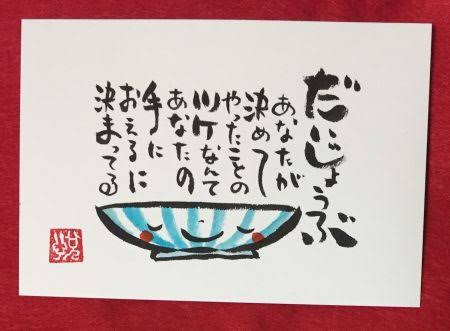 だいじょうぶ
あなたが
決めて
やったことの
ツケなんて
あなたの
手に
おえるに
決まってる